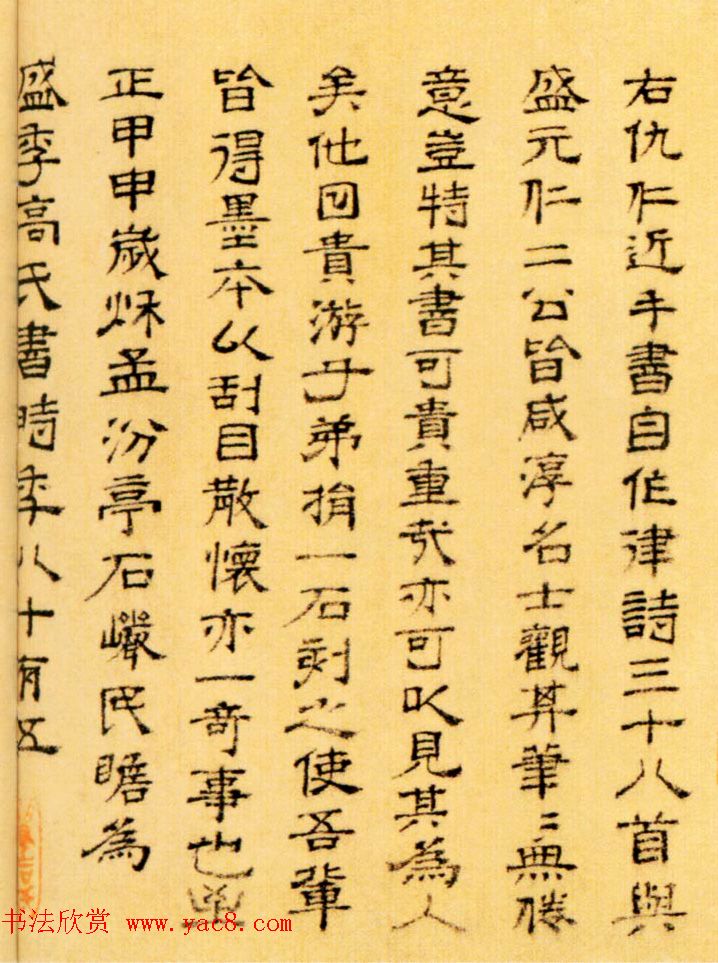 右仇仁近手書自作律詩三十八首與
盛元仁二公皆咸淳名士觀其筆〻無倦
意豈特其書可貴重哉亦可以見其為人
矣他回貴游子弟捐一石刻之使吾輩
皆得墨本以刮目散懷亦一奇事也至
正甲申歲秌孟汾亭石巖民瞻為
盛季高氏書時季八十有五
书法欣赏 www.yac8.com